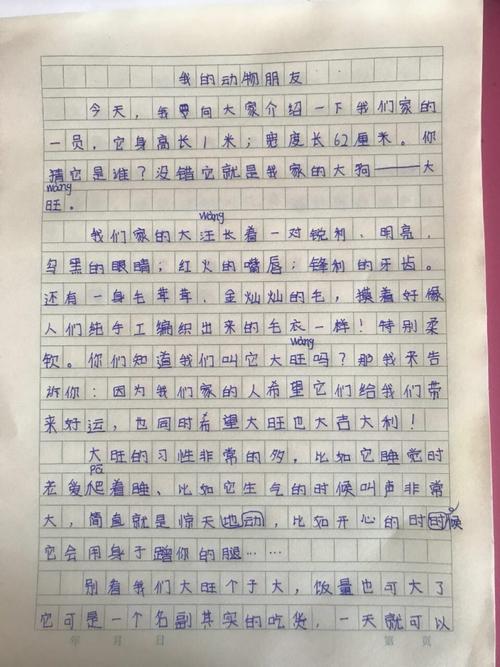 我的动物朋友
今天，我要向大家介绍一下我们家的
一员，它身高长1米；宽度长62厘米。你
猜它是谁？没错它就是我家的大狗——大
wàng
旺。
wāng
我们家的大汪长着一对锐利、明亮、
乌黑的眼睛；红火的嘴唇；锋利的牙齿。
还有一身毛茸茸、金灿灿的毛，摸着好像
人们纯手工编织出来的毛衣一样！特别柔
wàng
软。你们知道我们叫它大旺吗？那我来告
诉你：因为我们家的人希望它们给我们带
来好运，也同时希望大旺也大吉大利！
大旺的习性非常的多，比如它睡觉时
pā
老爱爬着睡、比如它生气的时候叫声非常
大，简直就是惊天地动，比如开心的时时候
它会用身子蹭你的腿……
别看我们大旺个子大，饭量也可大了
它可是一个名副其实的吃货，一天就可以
年 月 日 第 页